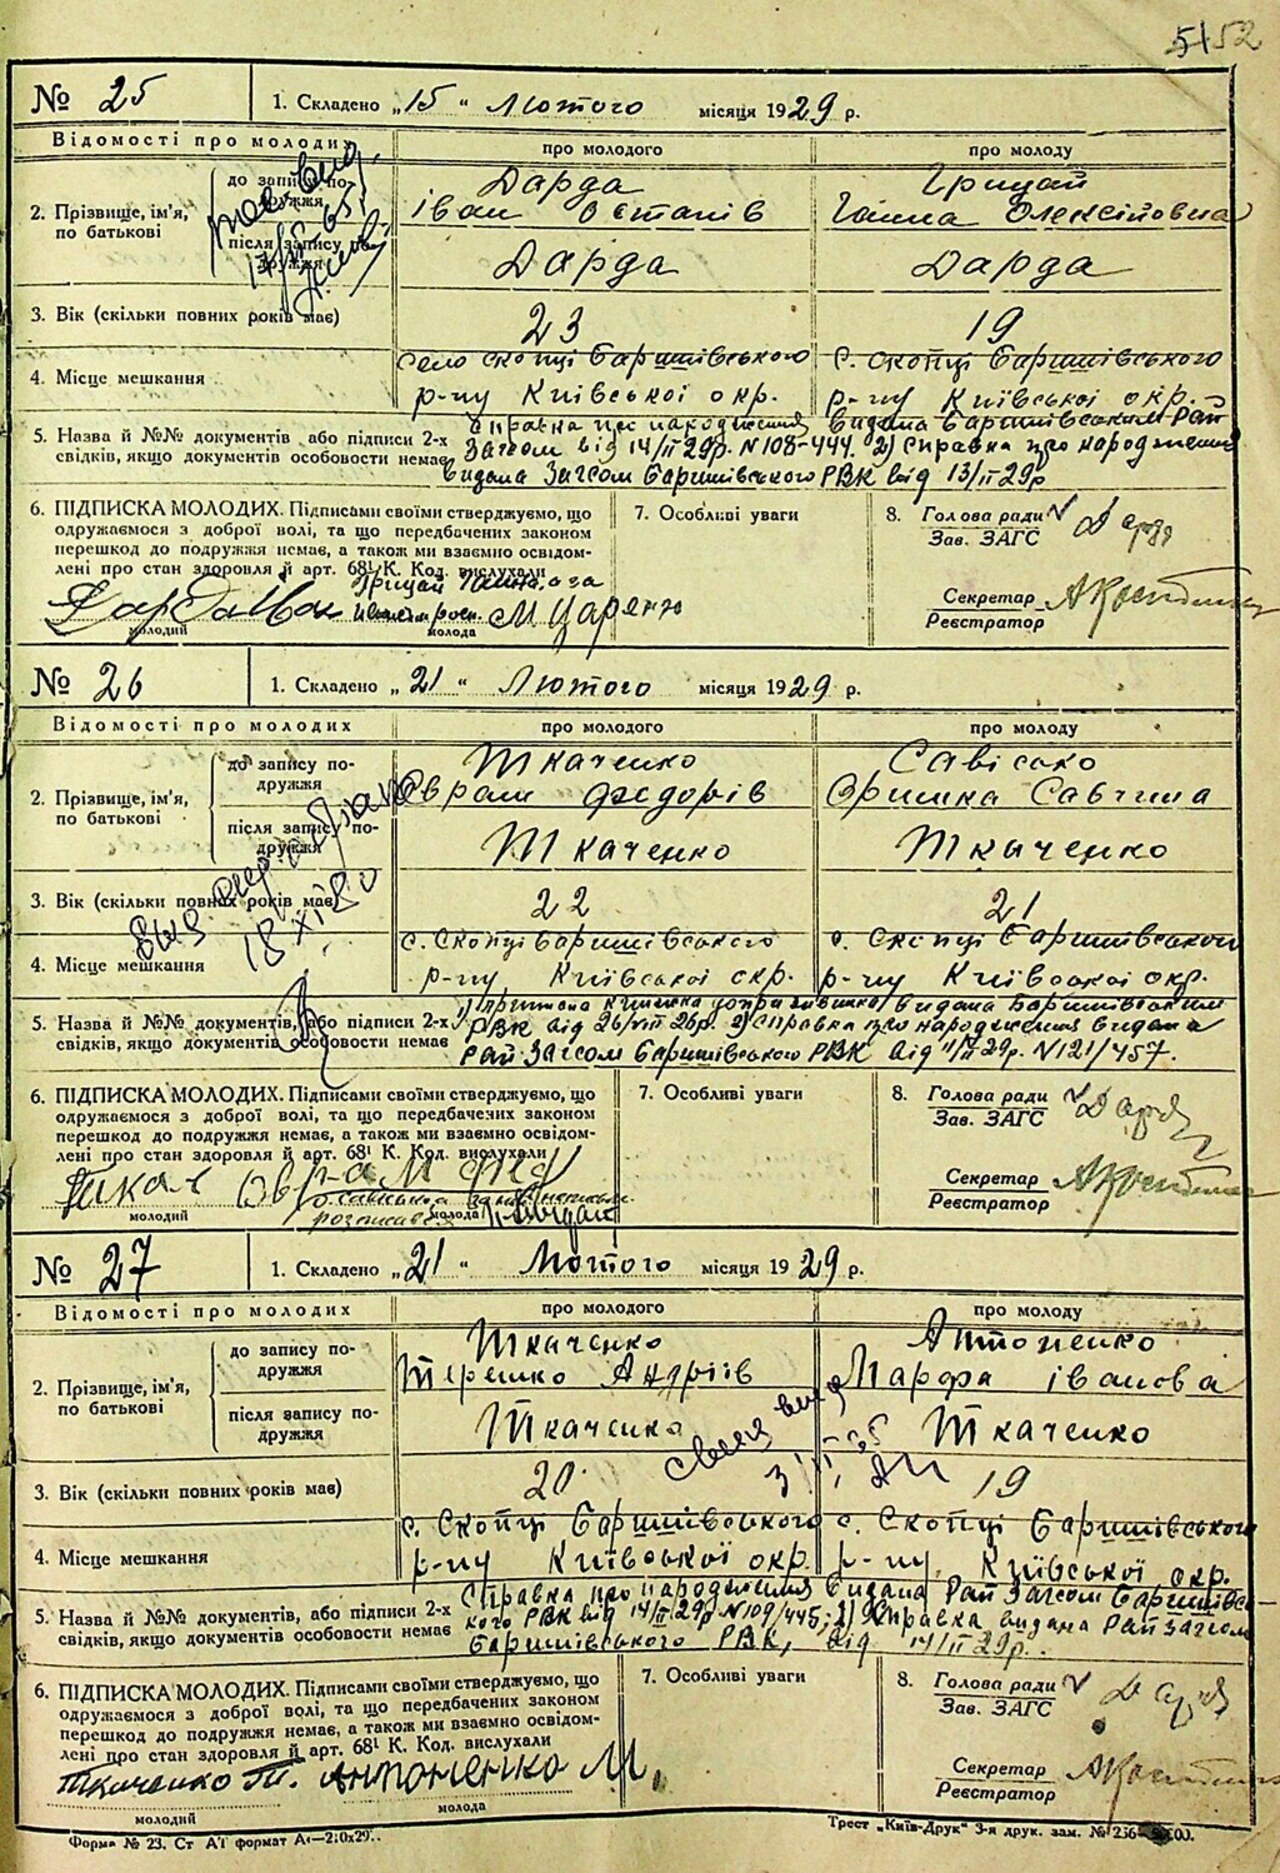 52
№ 25
1. Складено „15“ Лютого місяця 1929 р.
Відомості про молодих
про молодого
про молоду
2. Прізвище, ім’я, по батькові
до запису по-
дружжя
Дарда
Іван Остапів
Грицай
Ганна Олексіївна
після запису по-
дружжя
Дарда
Дарда
3. Вік (скільки повних років має)
23
19
4. Місце мешкання
село Скопці Баришівського
р-ну Київської окр.
с. Скопці Баришівського
р-ну Київської окр.
5. Назва й №№ документів або підписи 2-х
свідків, якщо документів особовости немає
Справка про народження видана Баришівським Рай
Загсом від 14/II 29р. N 108-444. 2) Справка про народження
видана Загсом Баришівського РВК від 13/II 29р
6. ПІДПИСКА МОЛОДИХ. Підписами своїми стверджуємо, що
одружаємося з доброї волі, та що передбачених законом
перешкод до подружжя немає, а також ми взаємно освідом-
лені про стан здоров’я й арт. 68¹ К. Код. вислухали
Дарда Іван
Грицай Ганна, а за
М Царенко
молодий
молода
7. Особливі уваги
8. Голова ради
Зав. ЗАГС
Дарда
Секретар
Реєстратор
№ 26
1. Складено „21“ Лютого місяця 1929 р.
Відомості про молодих
про молодого
про молоду
2. Прізвище, ім’я,
по батькові
до запису по-
дружжя
Ткаченко
Оврам Федорів
Савісько
Оришка Савчина
після запису по-
дружжя
Ткаченко
Ткаченко
3. Вік (скільки повних років має)
22
21
18 XI 80
4. Місце мешкання
с. Скопці Баришівського
р-ну Київської окр.
с. Скопці Баришівського
р-ну Київської окр.
5. Назва й №№ документів, або підписи 2-х
свідків, якщо документів особовости немає
1) книжка допризивника видана Баришівським
РВК від 26/VIII 26р. 2) Справка про народження видана
Рай Загсом Баришівського РВК від 11/II 29р. N 121/457.
6. ПІДПИСКА МОЛОДИХ. Підписами своїми стверджуємо, що
одружаємося з доброї волі, та що передбачених законом
перешкод до подружжя немає, а також ми взаємно освідом-
лені про стан здоров’я й арт. 68¹ К. Код. вислухали
молодий
молода
7. Особливі уваги
8. Голова ради
Зав. ЗАГС
Дарда
Секретар
Реєстратор
№ 27
1. Складено „21“ Лютого місяця 1929 р.
Відомості про молодих
про молодого
про молоду
2. Прізвище, ім’я,
по батькові
до запису по-
дружжя
Ткаченко
Терешко Андріїв
Антоненко
Марфа Іванова
після запису по-
дружжя
Ткаченко
Ткаченко
3. Вік (скільки повних років має)
20
19
4. Місце мешкання
с. Скопці Баришівського
р-ну Київської окр.
с. Скопці Баришівського
р-ну Київської окр.
5. Назва й №№ документів, або підписи 2-х
свідків, якщо документів особовости немає
Справка про народження видана Рай Загсом Баришівсь-
кого РВК від 14/II 29р N 109/445; 2) Справка видана Рай Загсом
Баришівського РВК, від 14/II 29р.
6. ПІДПИСКА МОЛОДИХ. Підписами своїми стверджуємо, що
одружаємося з доброї волі, та що передбачених законом
перешкод до подружжя немає, а також ми взаємно освідом-
лені про стан здоров’я й арт. 68¹ К. Код. вислухали
Ткаченко Т. Антоненко М.
молодий
молода
7. Особливі уваги
8. Голова ради
Зав. ЗАГС
Дарда
Секретар
Реєстратор
Форма № 23. Ст А1 формат А4—210х29..
Трест „Київ-Друк“ 3-я друк. зам. № 256